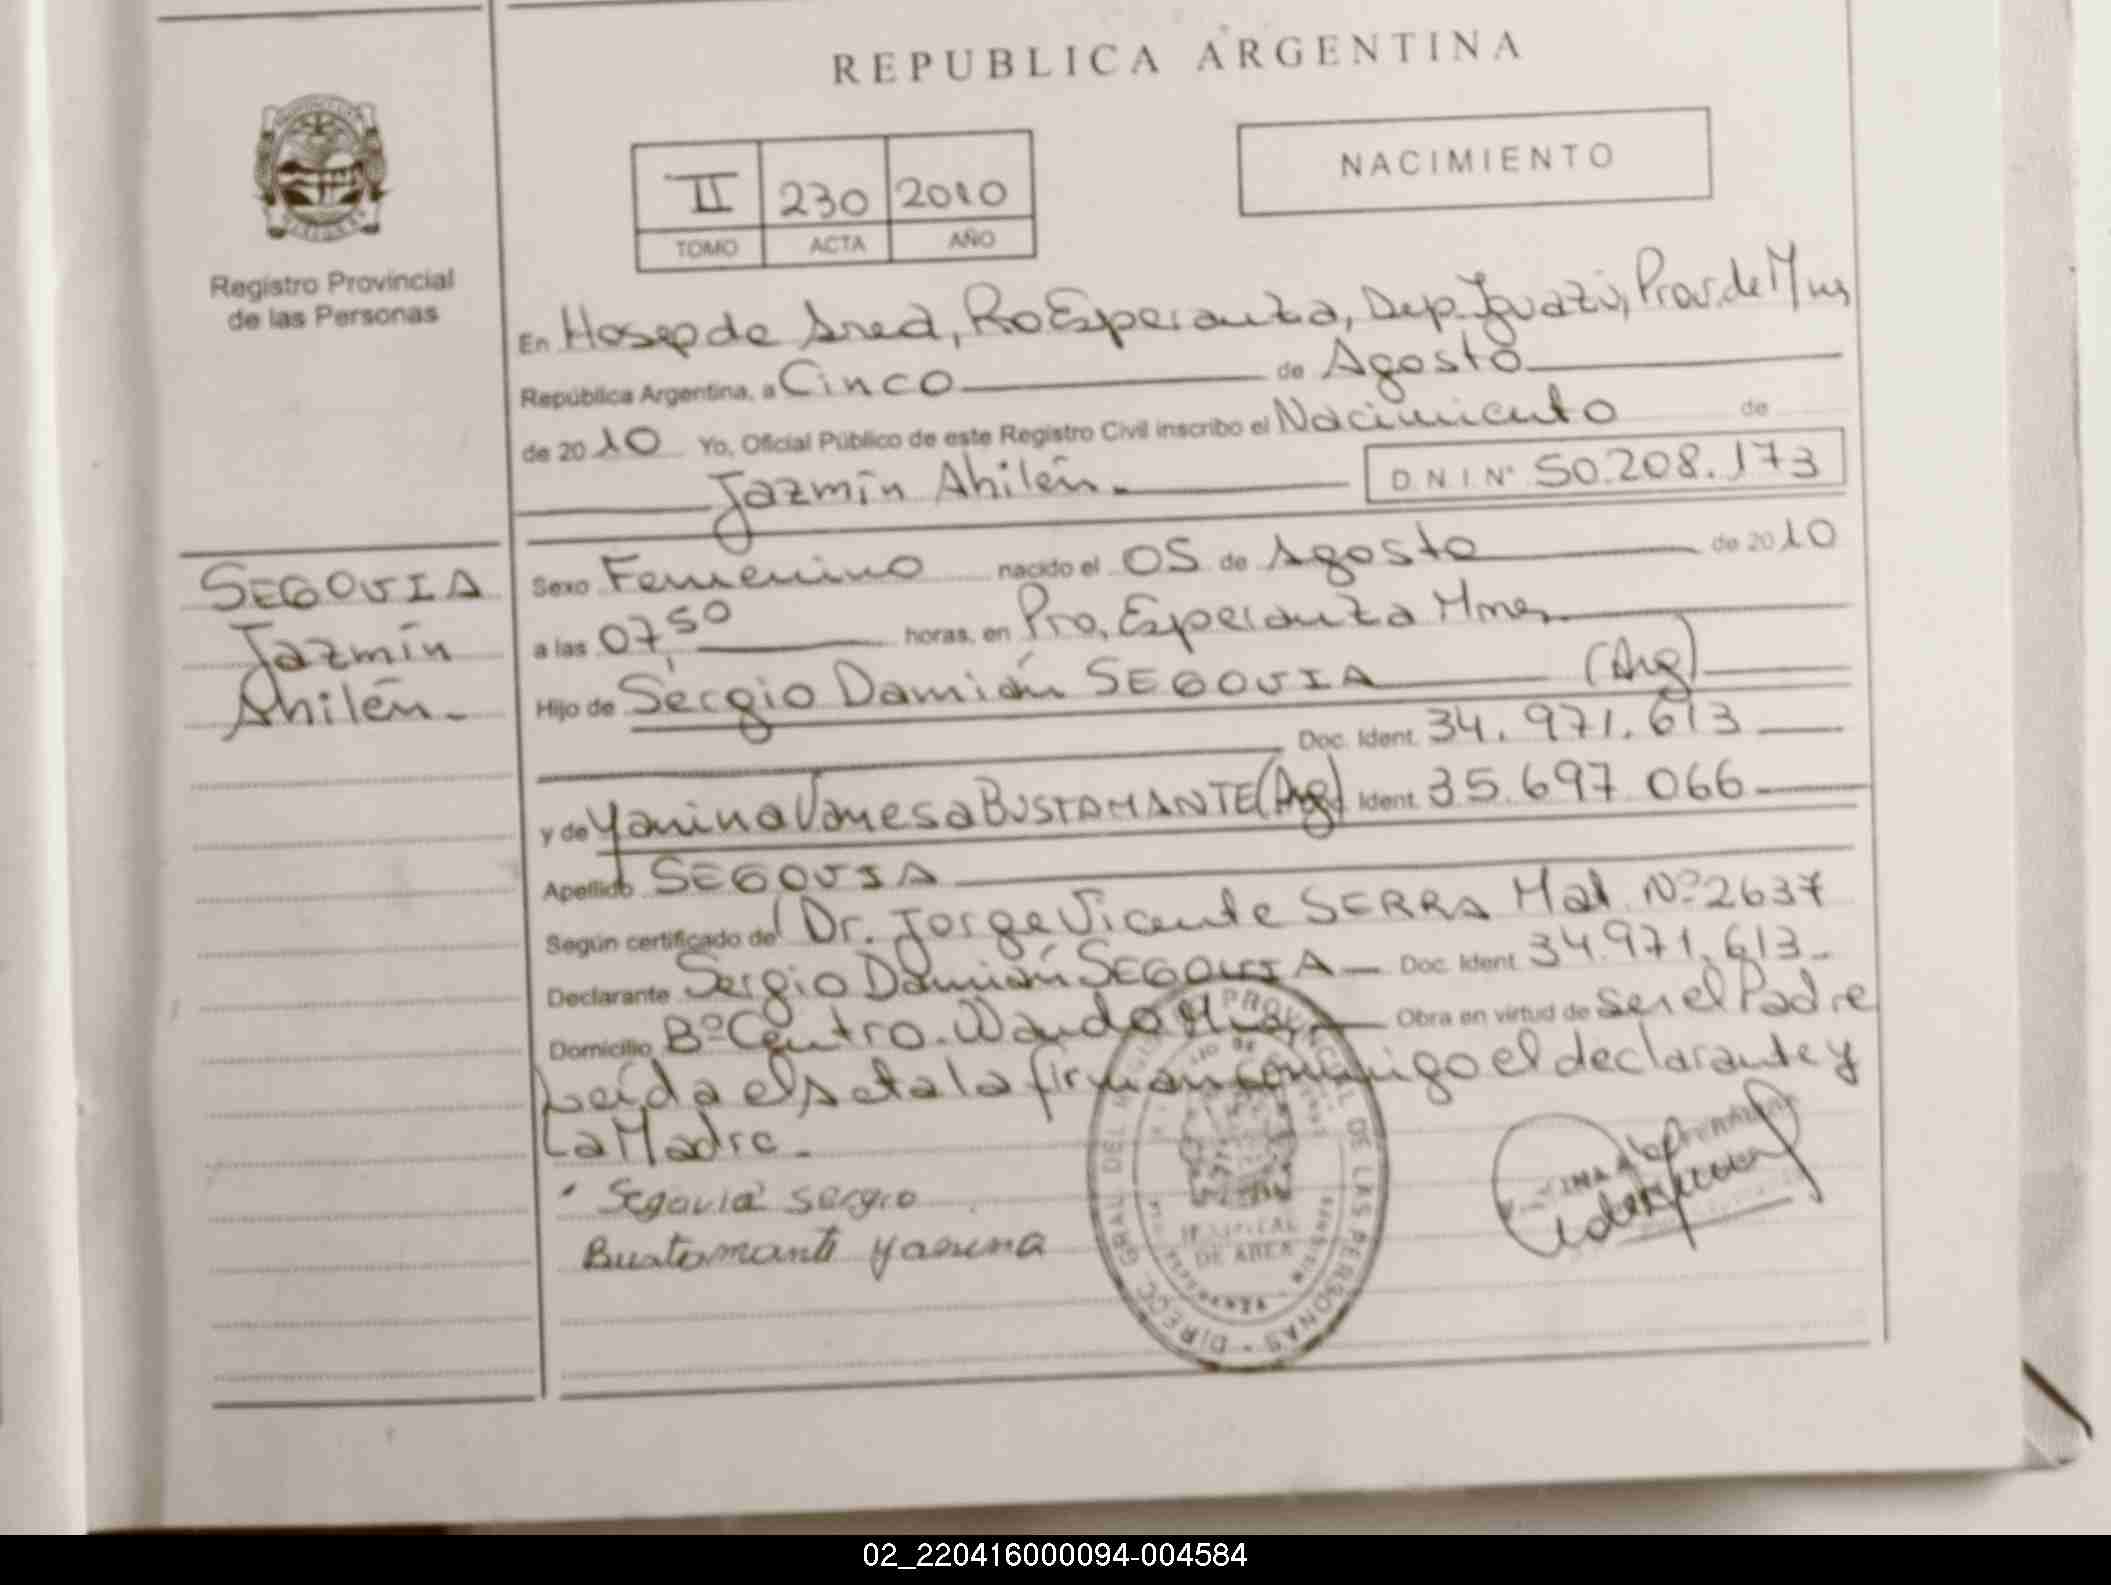 REPUBLICA ARGENTINA
NACIMIENTO
II 230 2010
TOMO ACTA AÑO
Registro Provincial
de las Personas
En Hosp de Area, Pto Esperanza, Dep. Iguazú, Prov. de Mnes
República Argentina, a Cinco de Agosto
de 2010 Yo, Oficial Público de este Registro Civil inscribo el Nacimiento de
Jazmín Ahilén.- D.N.I.Nº 50.208.173
SEGOVIA
Jazmín
Ahilén.-
Sexo Femenino nacido el 05 de Agosto de 2010
a las 07,50 horas, en Pto. Esperanza Mnes
Hijo de Sergio Damián SEGOVIA (Arg)
Doc. Ident. 34.971.613
y de Yanina Vanesa BUSTAMANTE (Arg) Ident. 35.697.066
Apellido SEGOVIA
Según certificado del Dr. Jorge Vicente SERRA Mat. Nº 2637
Declarante Sergio Damián SEGOVIA Doc. Ident. 34.971.613.-
Domicilio Bº Centro. Wanda Obra en virtud de ser el Padre
Leída el acta la firman conmigo el declarante y
La Madre.-
Segovia Sergio
Bustamante Yanina
DIRECC GRAL DEL PROVINCIAL DE LAS PERSONAS
HOSPITAL
DE AREA
02_220416000094-004584